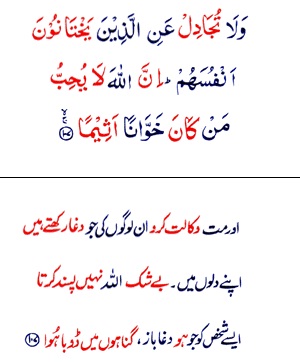 وَلَا تُجَادِلْ عَنِ الَّذِيْنَ يَخْتَانُوْنَ
اَنْفُسَهُمْ ؕ اِنَّ اللّٰهَ لَا يُحِبُّ
مَنْ كَانَ خَوَّانًا اَثِيْمًا ۙ ﴿۱۰۷﴾
اور مت وکالت کرو ان لوگوں کی جو دغا رکھتے ہیں
اپنے دلوں میں۔ بے شک اللہ نہیں پسند کرتا
ایسے شخص کو جو ہو دغا باز، گناہوں میں ڈوبا ہُوا ﴿۱۰۷﴾